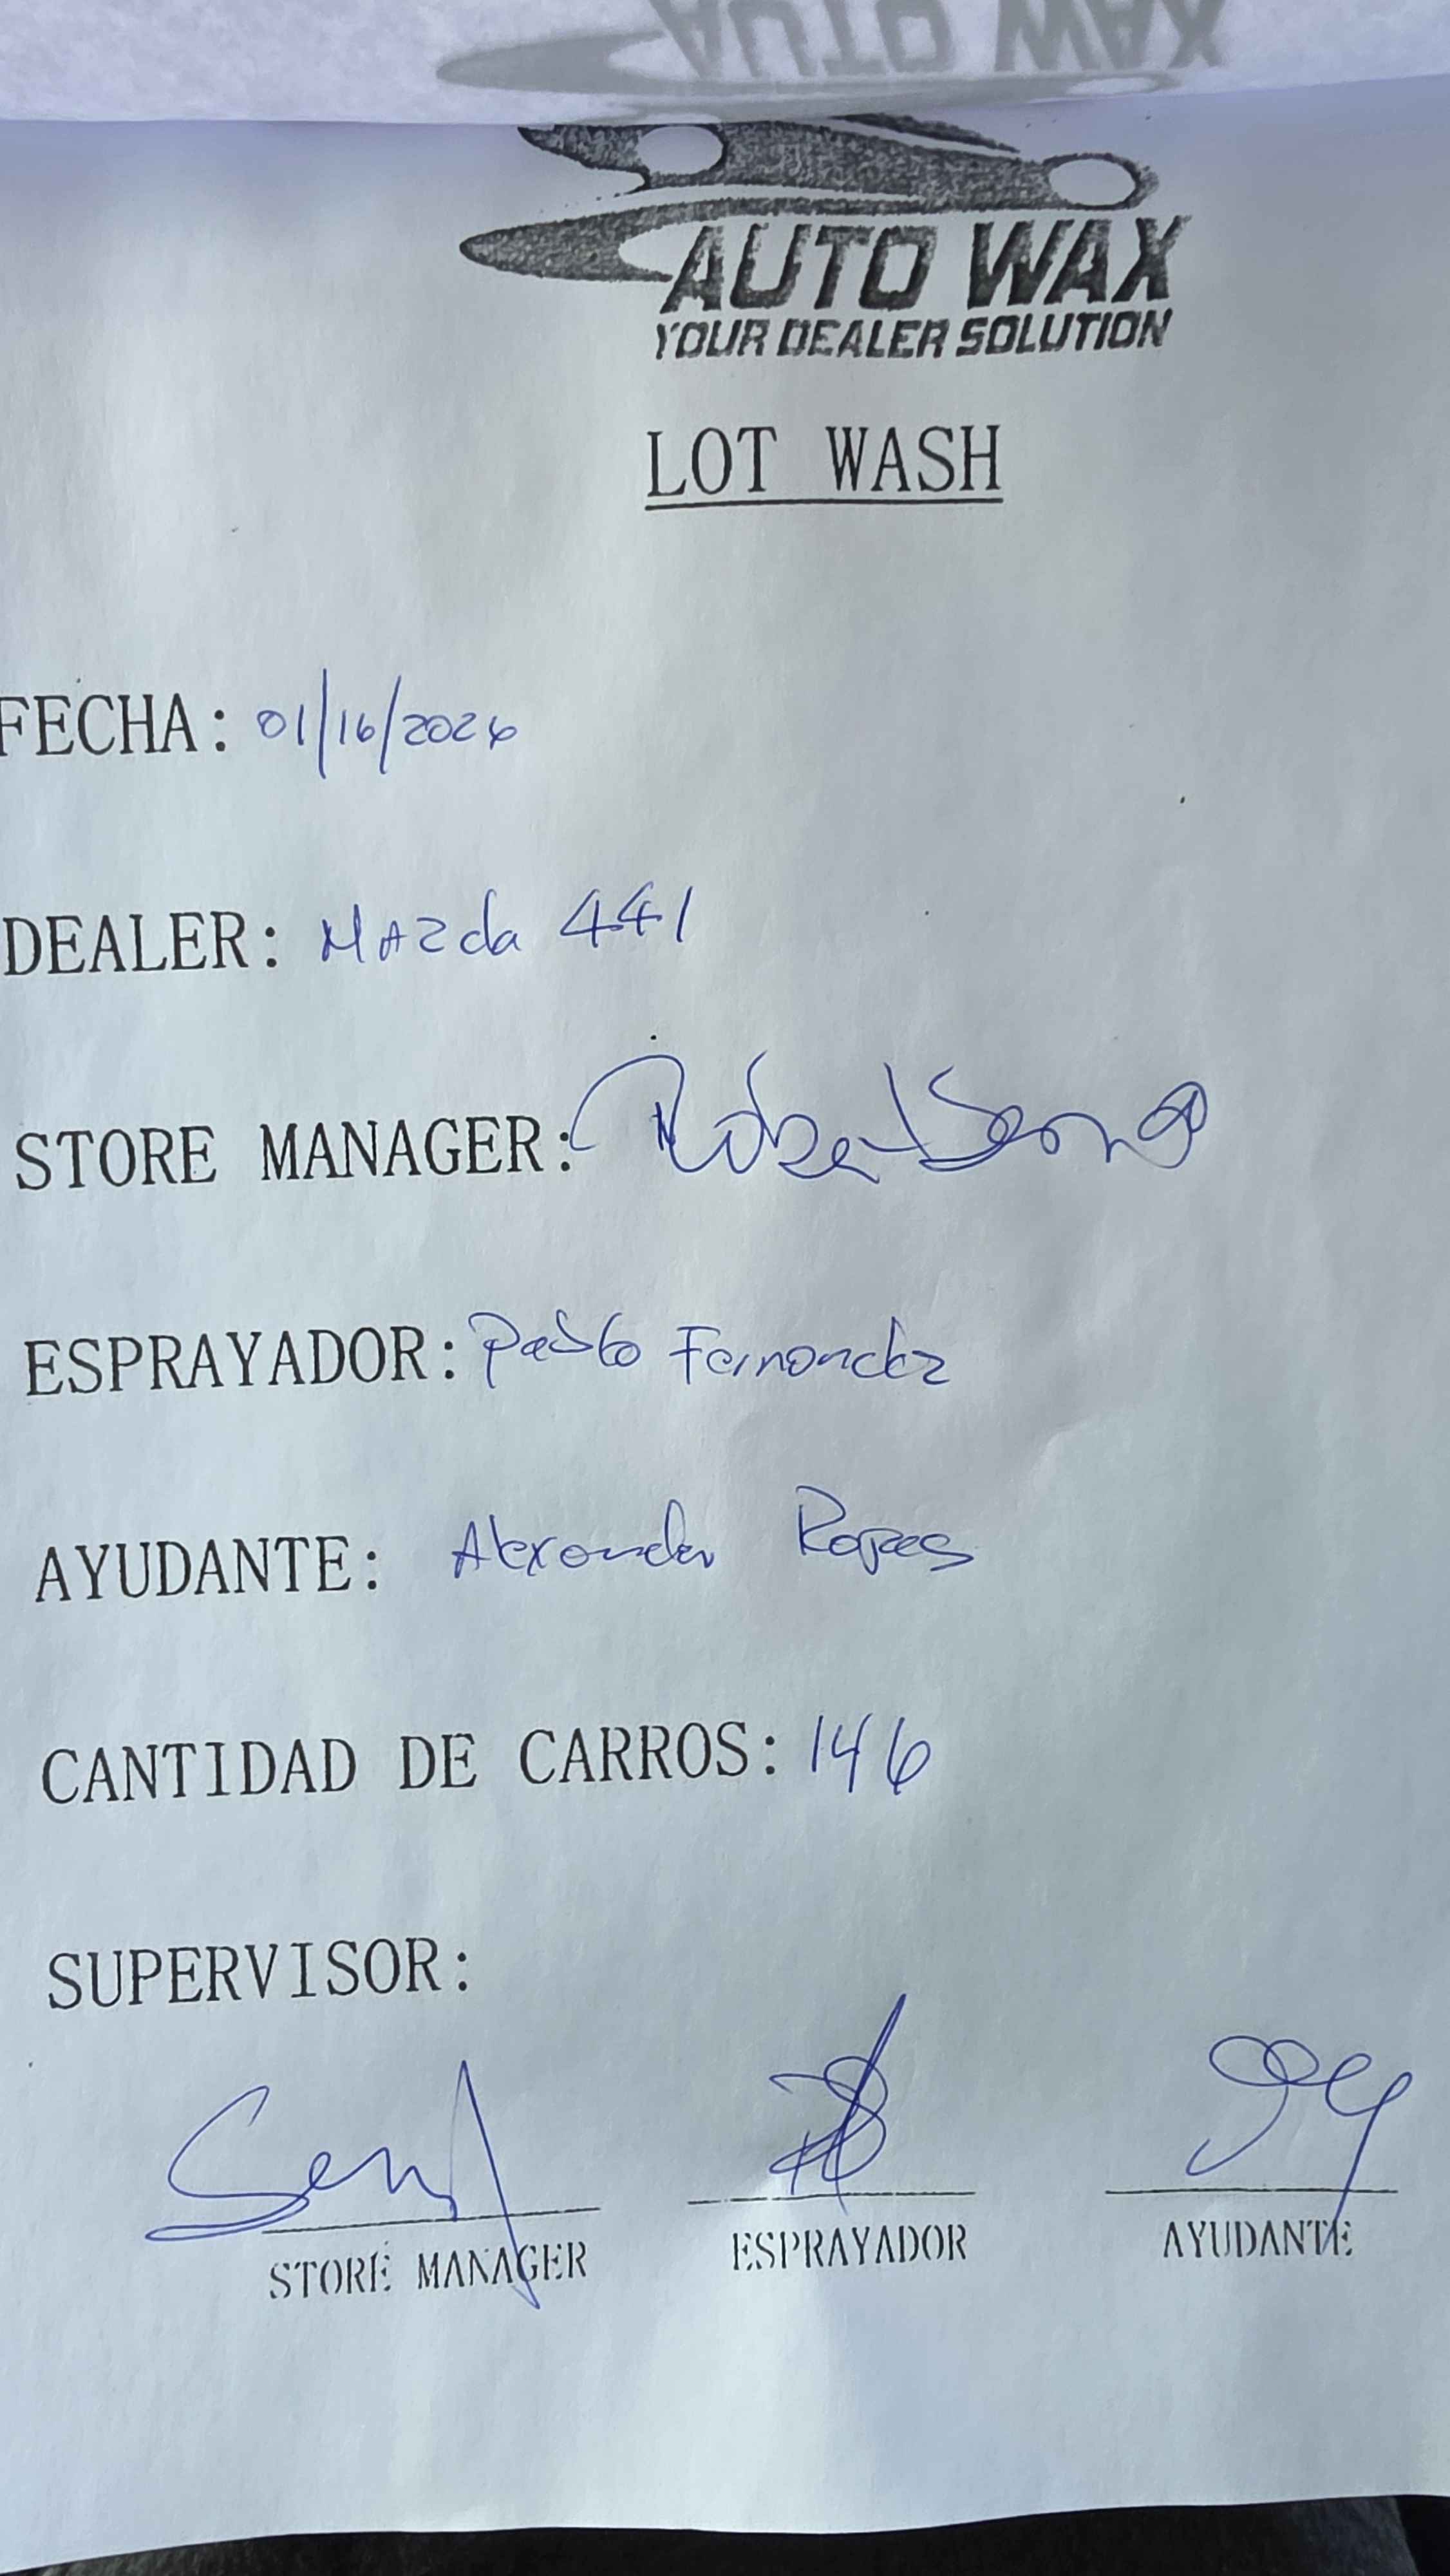 AUTO WAX
AUTO WAX
YOUR DEALER SOLUTION
LOT WASH
FECHA: 01/16/2026
DEALER: Mazda 441
STORE MANAGER: Robert
ESPRAYADOR: Pablo Fernandez
AYUDANTE: Alexander
CANTIDAD DE CARROS: 146
SUPERVISOR:
STORE MANAGER ESPRAYADOR AYUDANTE